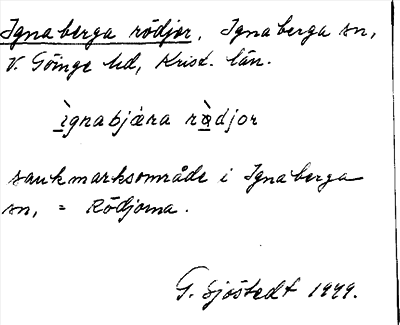 Ignaberga rödjor, Ignaberga sn,
V. Göinge hd, Krist. län.
ìgnabjæra rø̀djor
sankmarksområde i Ignaberga
sn, = Rödjorna.
G. Sjöstedt 1949.